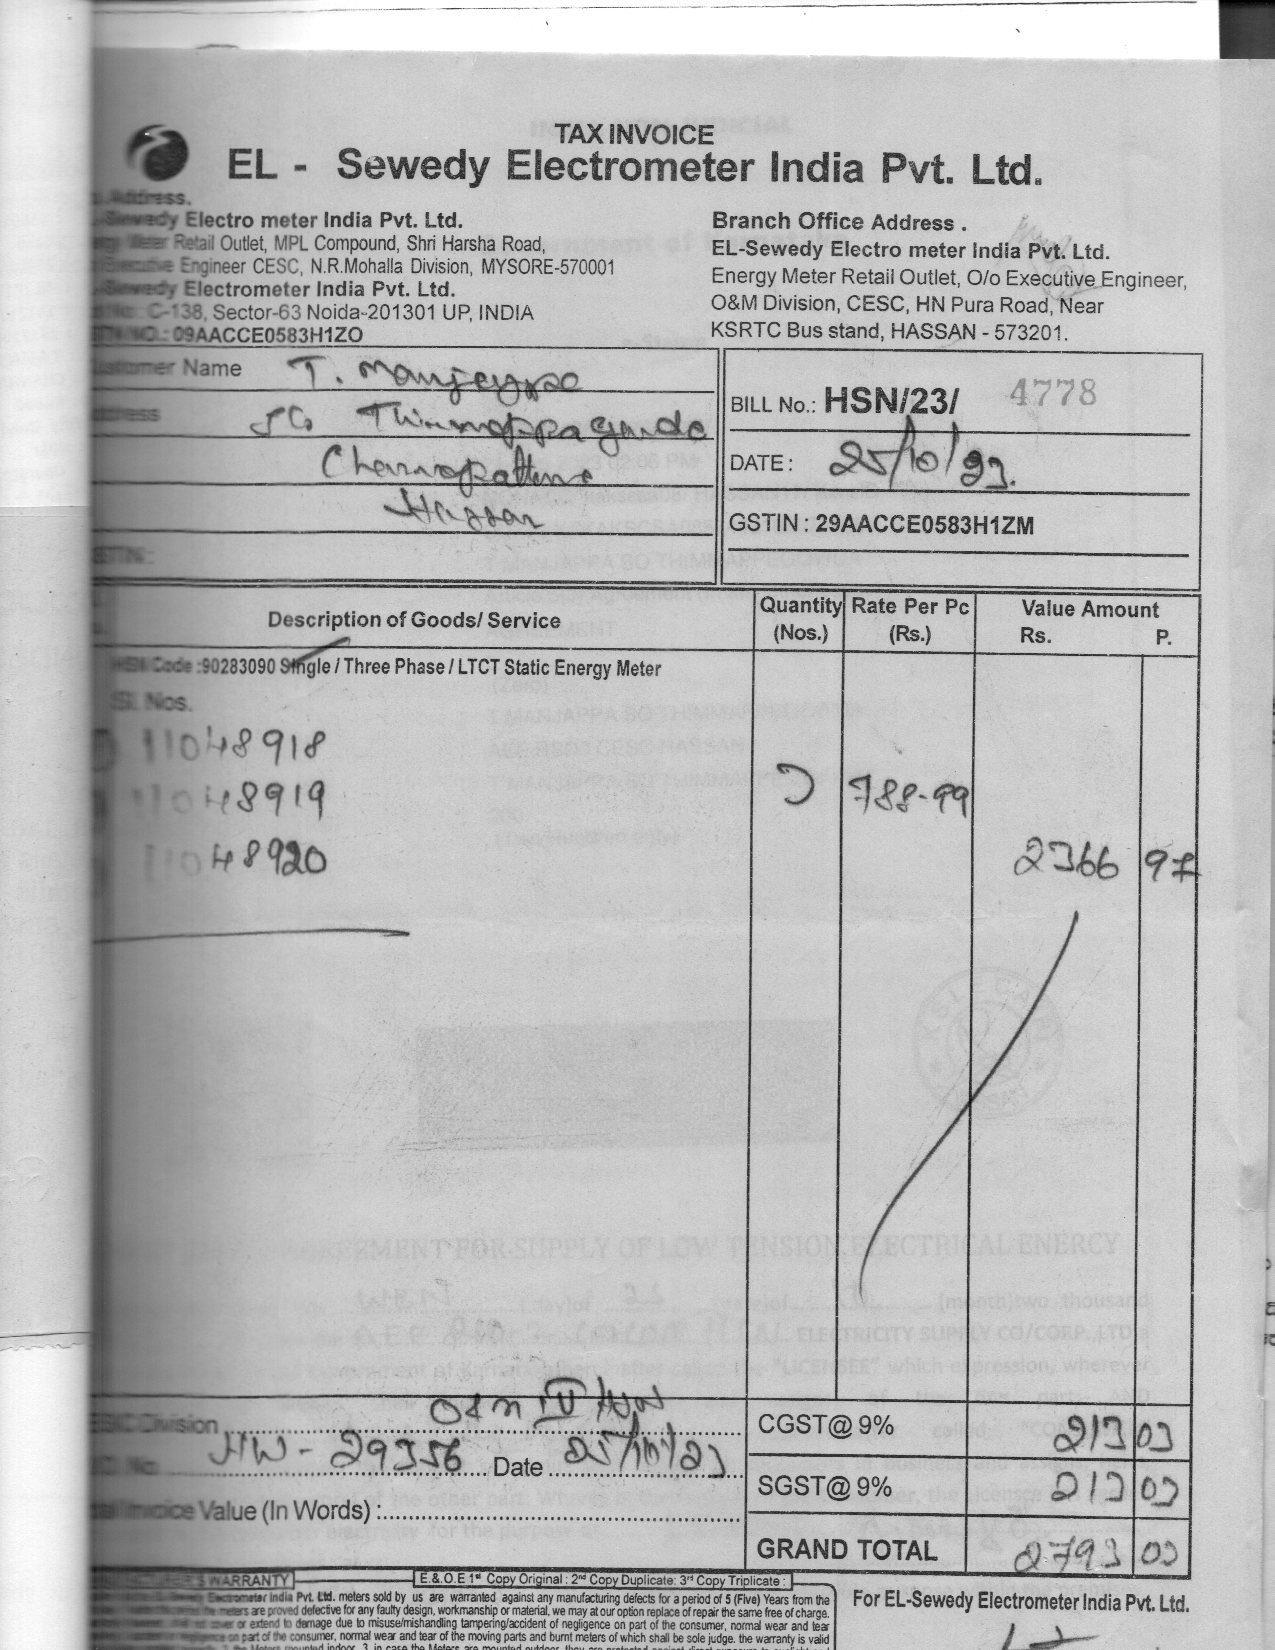 TAX INVOICE
EL - Sewedy Electrometer India Pvt. Ltd.
Address.
Sewedy Electro meter India Pvt. Ltd.
Retail Outlet, MPL Compound, Shri Harsha Road,
Executive Engineer CESC, N.R.Mohalla Division, MYSORE-570001
Sewedy Electrometer India Pvt. Ltd.
C-138, Sector-63 Noida-201301 UP, INDIA
09AACCE0583H1ZO
Branch Office Address .
EL-Sewedy Electro meter India Pvt. Ltd.
Energy Meter Retail Outlet, O/o Executive Engineer,
O&M Division, CESC, HN Pura Road, Near
KSRTC Bus stand, HASSAN - 573201.
Customer Name T. Manjeyppa
Address S/o Thimmappa gouda
Channapattana
Hassan
GSTIN :
BILL No.: HSN/23/ 4778
DATE : 25/10/23.
GSTIN : 29AACCE0583H1ZM
Description of Goods/ Service Quantity (Nos.) Rate Per Pc (Rs.) Value Amount Rs. P.
HSN Code :90283090 Single / Three Phase / LTCT Static Energy Meter
Sl. Nos.
11048918
11048919 3 788-99
11048920 2366 97
Division O&M IV HSN
HW - 29356 Date 25/10/23
Invoice Value (In Words) :
CGST@ 9% 213 03
SGST@ 9% 213 03
GRAND TOTAL 2793 03
WARRANTY
E.& O.E 1st Copy Original : 2nd Copy Duplicate: 3rd Copy Triplicate :
Electrometer India Pvt. Ltd. meters sold by us are warranted against any manufacturing defects for a period of 5 (Five) Years from the
meters are proved defective for any faulty design, workmanship or material, we may at our option replace of repair the same free of charge.
or extend to damage due to misuse/mishandling tampering/accident of negligence on part of the consumer, normal wear and tear
on part of the consumer, normal wear and tear of the moving parts and burnt meters of which shall be sole judge. the warranty is valid
For EL-Sewedy Electrometer India Pvt. Ltd.